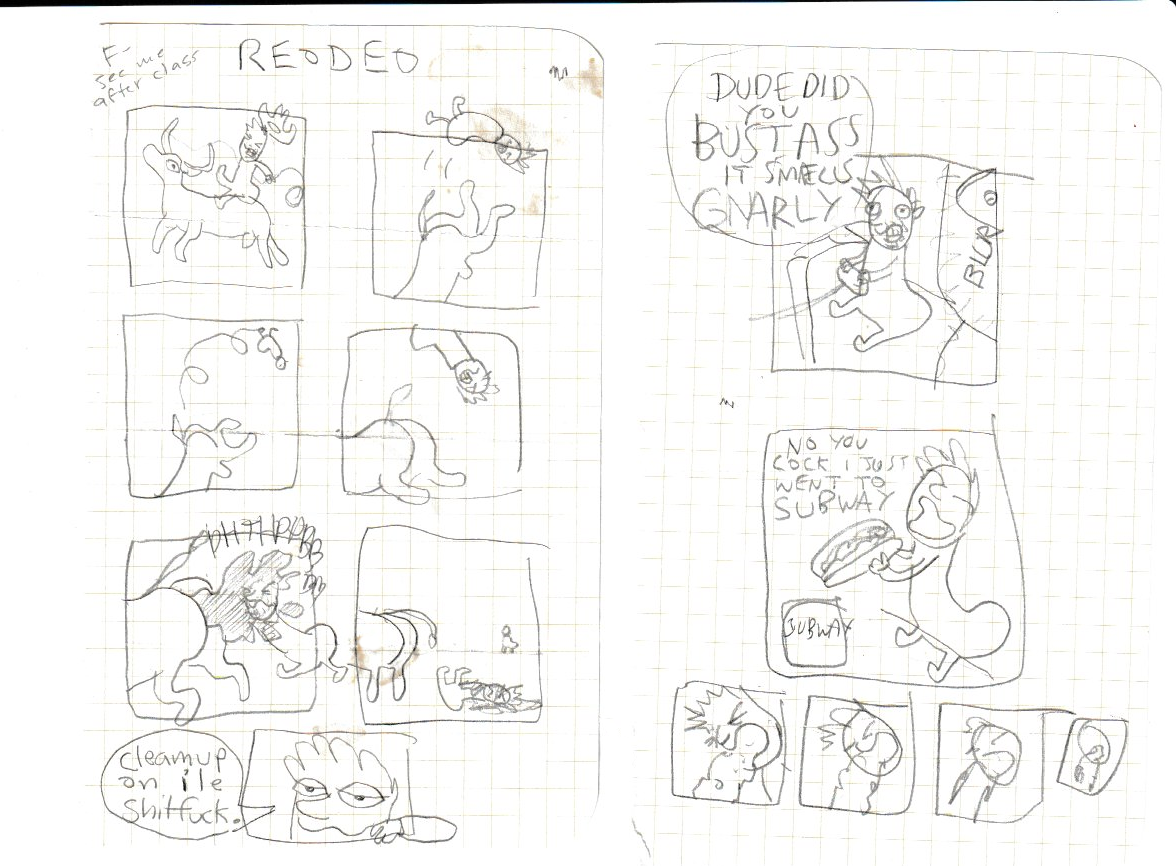 F-
see me
after class
REODEO
PHTHPPBB
cleanup
on ile
shitfuck.
DUDE DID
YOU
BUST ASS
IT SMELLS
GNARLY
BLUR
NO YOU
COCK I JUST
WENT TO
SUBWAY
SUBWAY